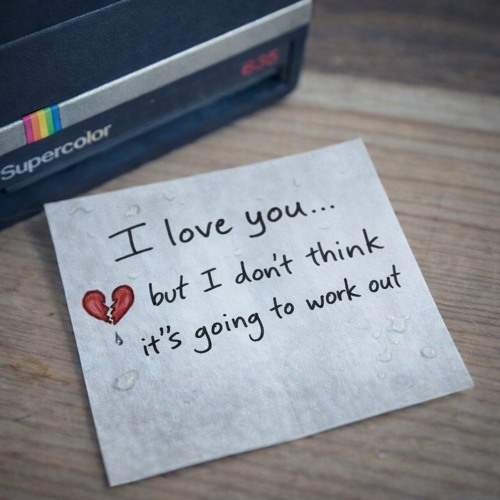 635
Supercolor
I love you...
but I don't think
it"s going to work out